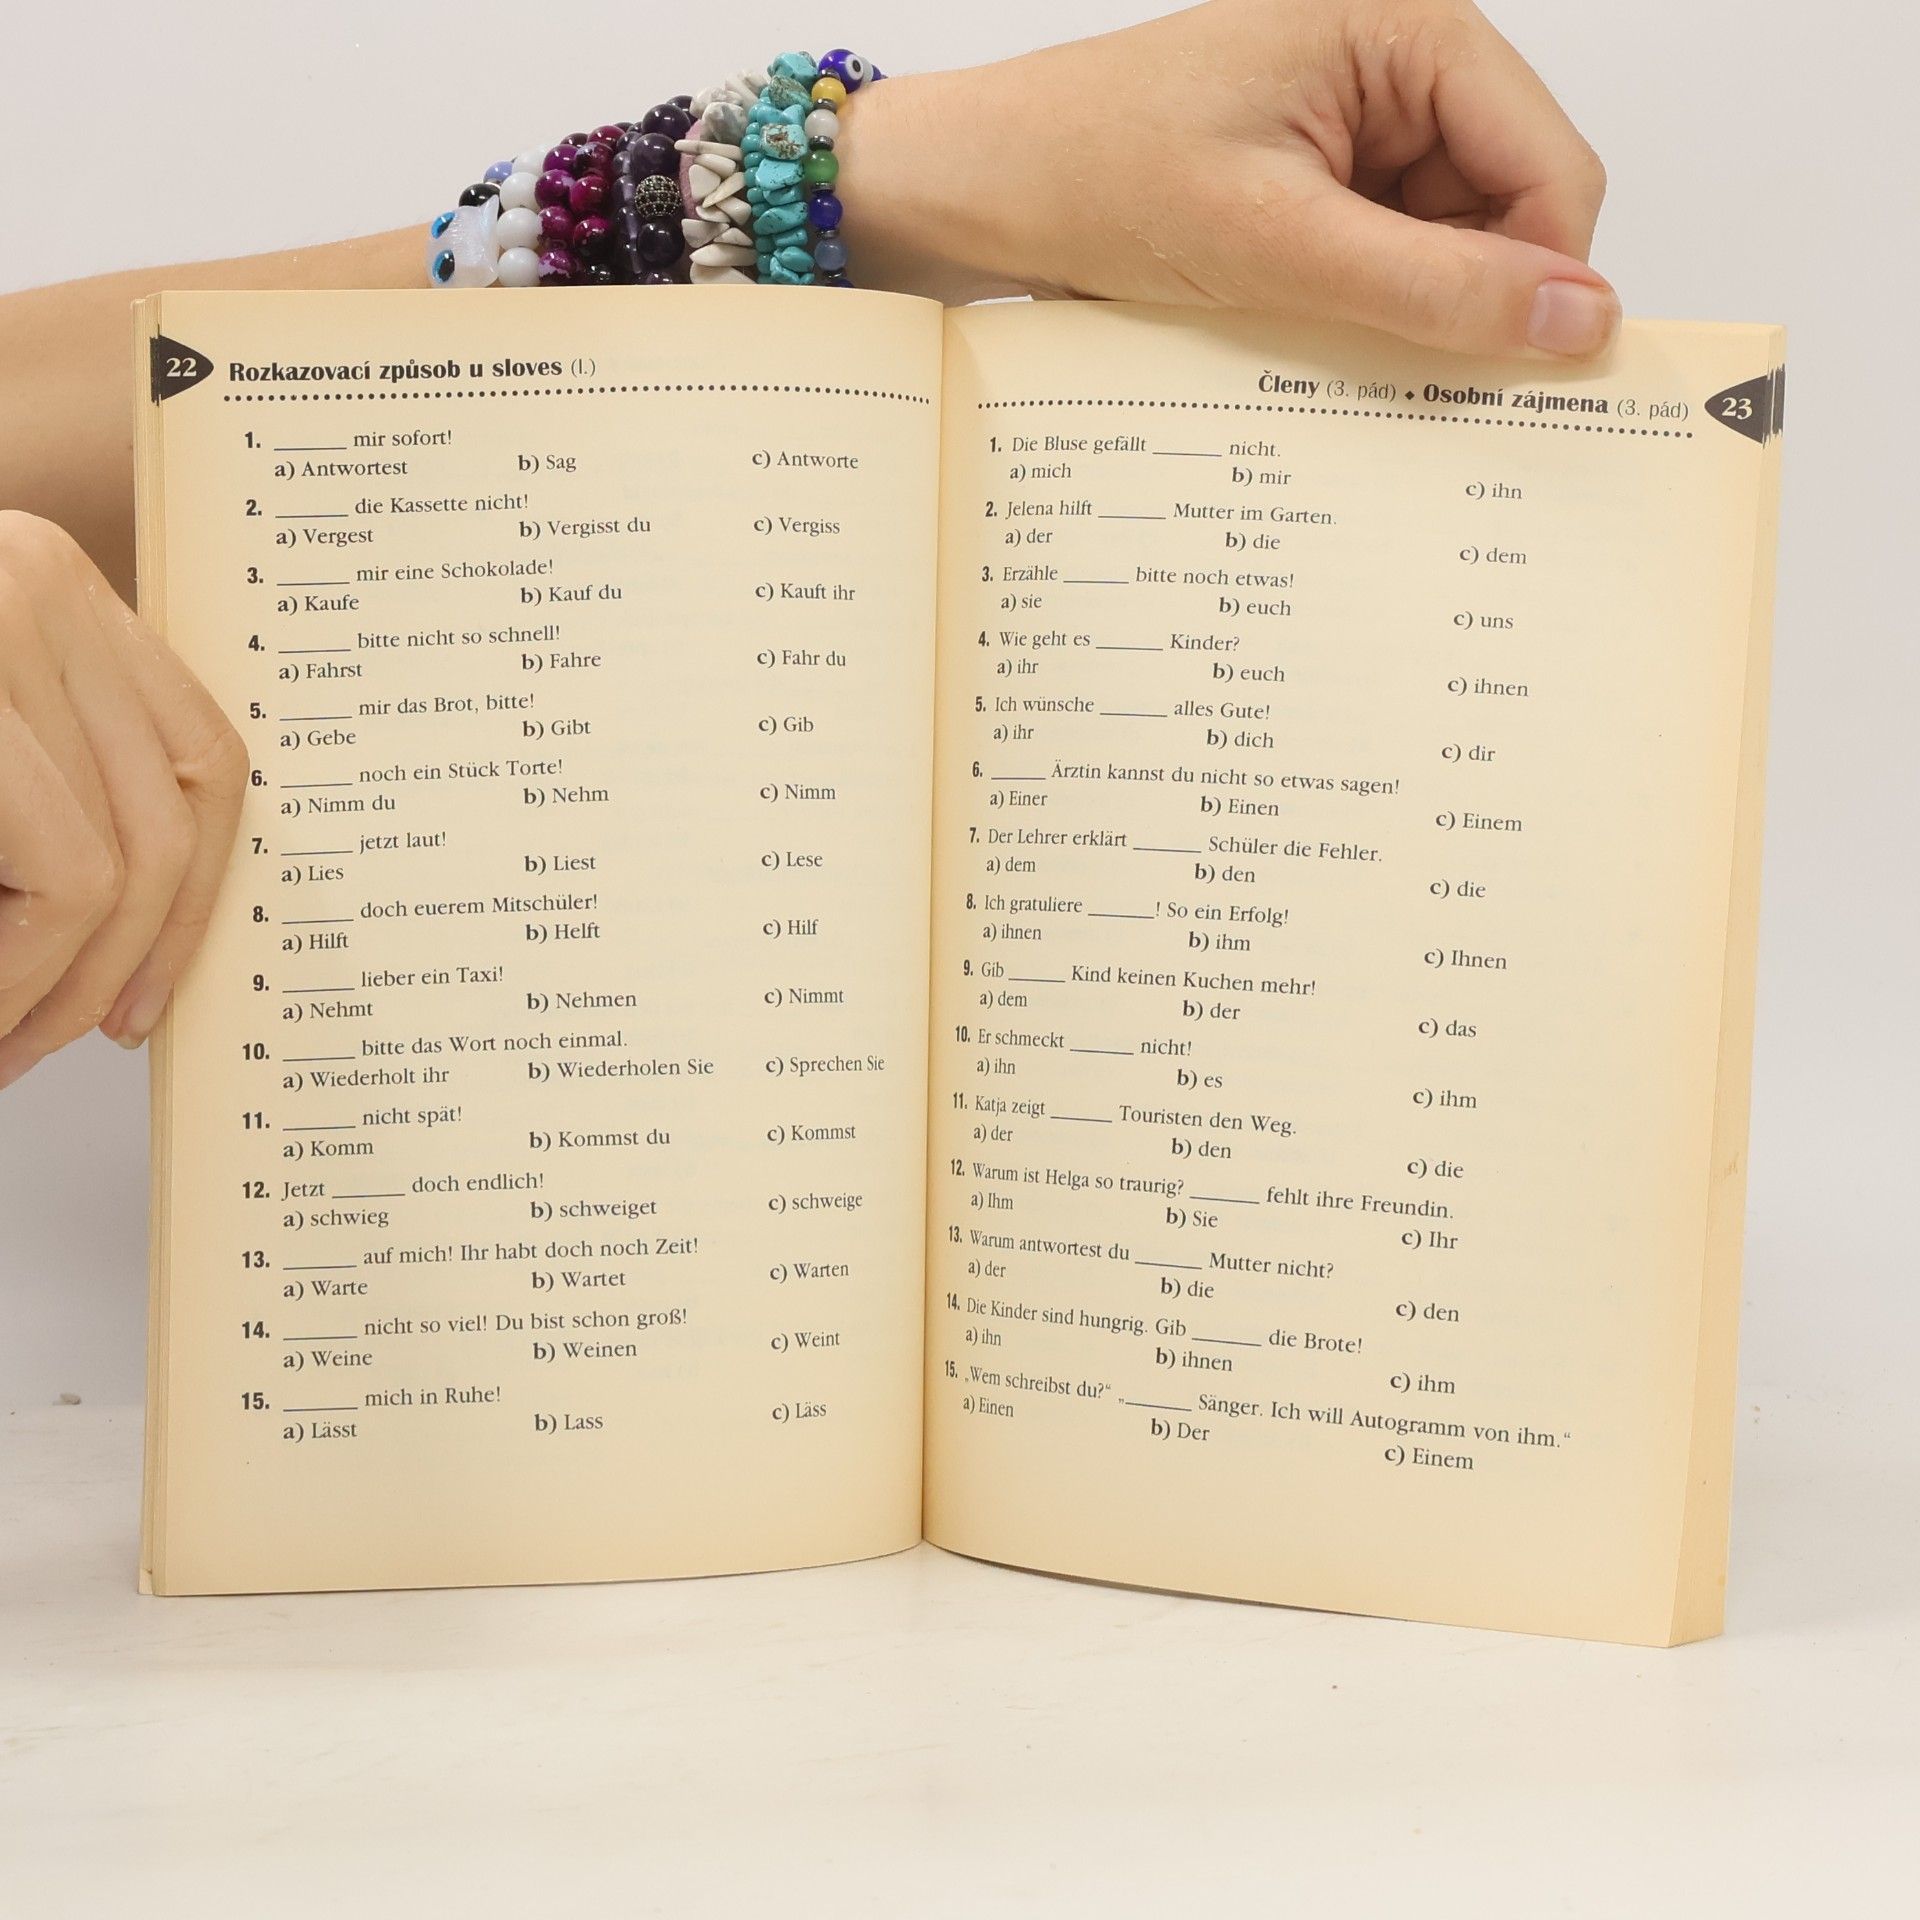 22
Rozkazovací způsob u sloves (I.)
1. ______ mir sofort!
a) Antwortest b) Sag c) Antworte
2. ______ die Kassette nicht!
a) Vergest b) Vergisst du c) Vergiss
3. ______ mir eine Schokolade!
a) Kaufe b) Kauf du c) Kauft ihr
4. ______ bitte nicht so schnell!
a) Fahrst b) Fahre c) Fahr du
5. ______ mir das Brot, bitte!
a) Gebe b) Gibt c) Gib
6. ______ noch ein Stück Torte!
a) Nimm du b) Nehm c) Nimm
7. ______ jetzt laut!
a) Lies b) Liest c) Lese
8. ______ doch euerem Mitschüler!
a) Hilft b) Helft c) Hilf
9. ______ lieber ein Taxi!
a) Nehmt b) Nehmen c) Nimmt
10. ______ bitte das Wort noch einmal.
a) Wiederholt ihr b) Wiederholen Sie c) Sprechen Sie
11. ______ nicht spät!
a) Komm b) Kommst du c) Kommst
12. Jetzt ______ doch endlich!
a) schwieg b) schweiget c) schweige
13. ______ auf mich! Ihr habt doch noch Zeit!
a) Warte b) Wartet c) Warten
14. ______ nicht so viel! Du bist schon groß!
a) Weine b) Weinen c) Weint
15. ______ mich in Ruhe!
a) Lässt b) Lass c) Läss
Členy (3. pád) ◆ Osobní zájmena (3. pád)
23
1. Die Bluse gefällt ______ nicht.
a) mich b) mir c) ihn
2. Jelena hilft ______ Mutter im Garten.
a) der b) die c) dem
3. Erzähle ______ bitte noch etwas!
a) sie b) euch c) uns
4. Wie geht es ______ Kinder?
a) ihr b) euch c) ihnen
5. Ich wünsche ______ alles Gute!
a) ihr b) dich c) dir
6. ______ Ärztin kannst du nicht so etwas sagen!
a) Einer b) Einen c) Einem
7. Der Lehrer erklärt ______ Schüler die Fehler.
a) dem b) den c) die
8. Ich gratuliere ______! So ein Erfolg!
a) ihnen b) ihm c) Ihnen
9. Gib ______ Kind keinen Kuchen mehr!
a) dem b) der c) das
10. Er schmeckt ______ nicht!
a) ihn b) es c) ihm
11. Katja zeigt ______ Touristen den Weg.
a) der b) den c) die
12. Warum ist Helga so traurig? ______ fehlt ihre Freundin.
a) Ihm b) Sie c) Ihr
13. Warum antwortest du ______ Mutter nicht?
a) der b) die c) den
14. Die Kinder sind hungrig. Gib ______ die Brote!
a) ihn b) ihnen c) ihm
15. „Wem schreibst du?“ „______ Sänger. Ich will Autogramm von ihm.“
a) Einen b) Der c) Einem